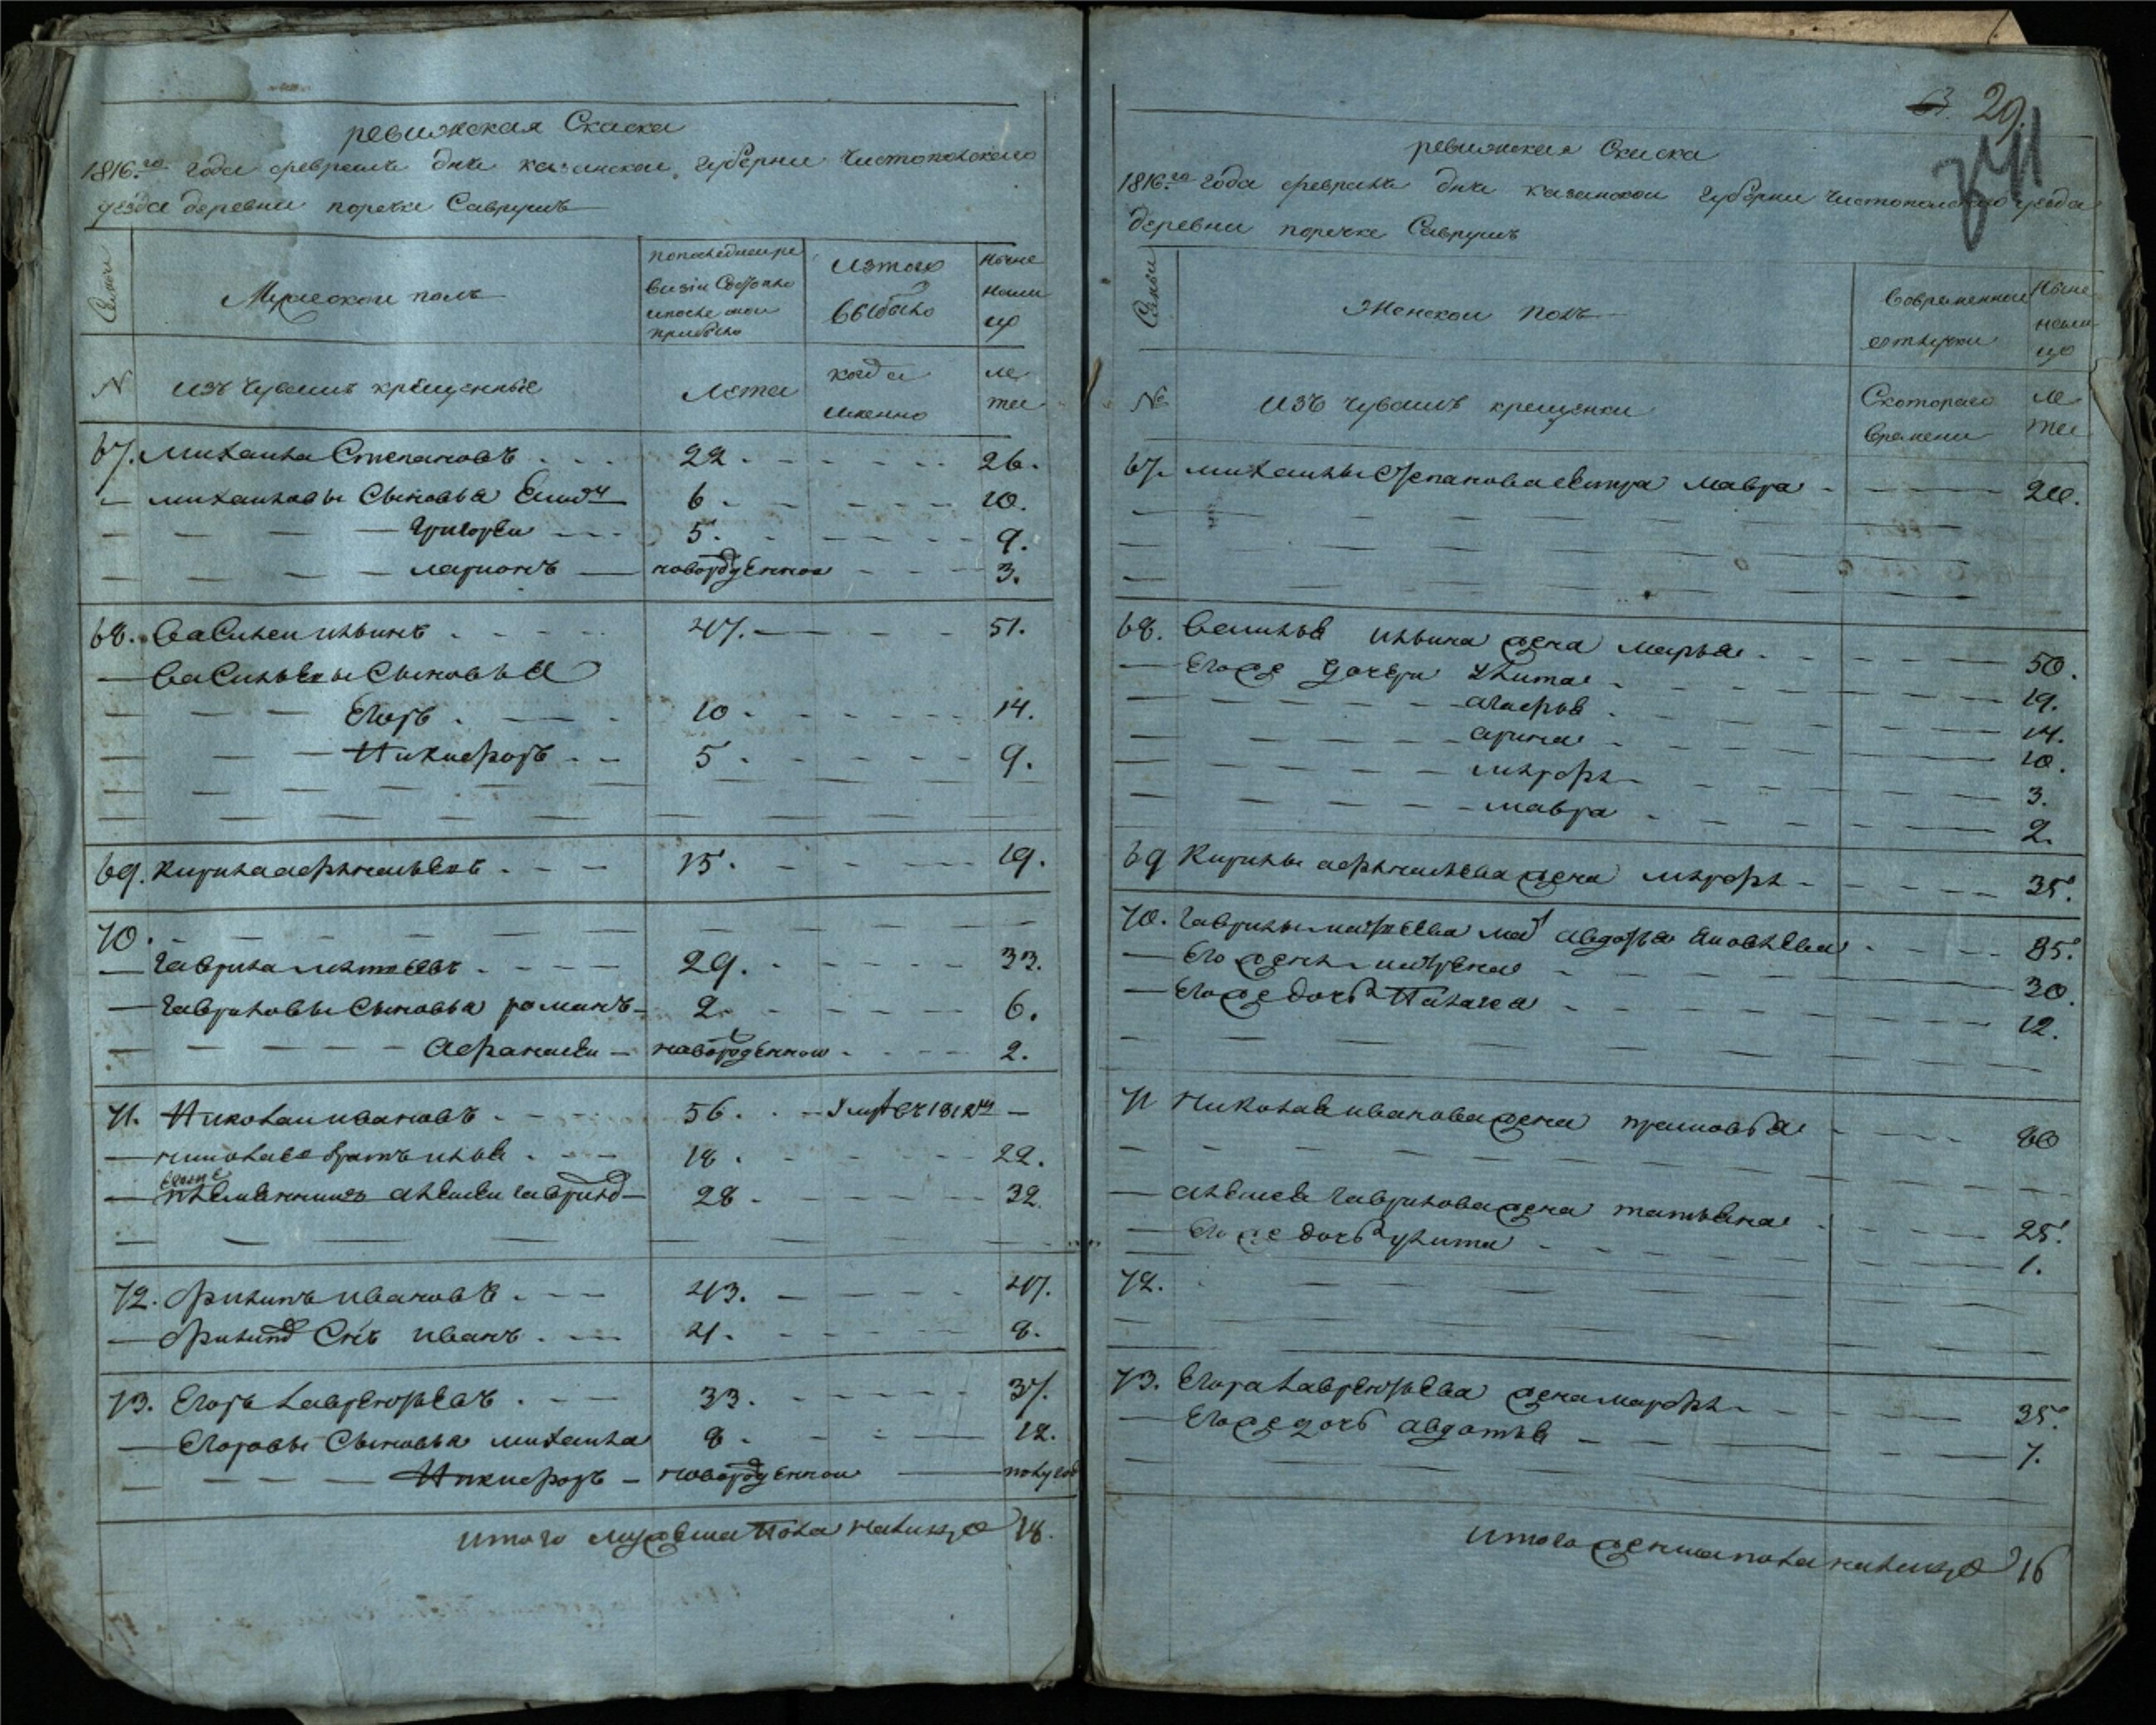 ревижская Скаска
1816.го года февраля дня казанской губернии чистопольскаго
уезда деревни поречке Саврушъ
Семьи
Мужескои полъ
попоследнеи ре
визіи Состояло
ипосле онои
прибыло
Изтого
выбыло
Ныне
нали
цо
N
изъ чувашъ крещенные
Лета
когда
имянно
ле
та
67. михаила Степановъ 22. 26.
михаиловы Сыновья 6 10.
григореи 5. 9.
ларионъ новорожденнои 3.
68. василеи ильинъ 47. 51.
васильевы Сыновья
Егоръ 10 14.
Никифоръ 5 9.
69. кирила афанасьевъ 15. 19.
70.
гаврила матвеевъ 29. 33.
гавриловы Сыновья романъ 2. 6.
Афанасеи новорожденнои 2.
71. Николаи ивановъ 56. умре въ 1812м
николаев братъ илья 18. 22.
племянникъ алексеи гаврилов 28 32.
72. филипъ ивановъ 43. 47.
филипов Снъ иванъ 4. 8.
73. Егоръ лаврентьевъ 33. 37.
Егоровы Сыновья михаила 8 12.
Никифоръ новорожденнои полугод
итого мужеска пола налицо 18.
29.
ревижская Скаска
1816.го года февраля дня казанскои губернии чистопольскаго уезда
деревни поречке Саврушъ
Семьи
Женскои полъ
Вовременнои
отлучки
Ныне
нали
цо
№
изъ чувашъ крещенки
Скотораго
времени
ле
та
67. михаилы Степанова мавра
68. василья ильина жена марья 50.
Егоже дочери улита 19.
агафья 14.
арина 10.
марфа 3.
мавра 2.
69 Кирилы афанасьева жена марфа 35.
70. гаврилы матвеева мат авдотья яковлева 85.
Его жена матрена 30.
Егоже дочь Палагея 12.
71 николая иванова жена прасковья 60
алексея гаврилова жена татьяна 25.
Егоже дочь улита 1.
72.
73. Егора лаврентьева жена марфа 35.
Егоже дочь авдотья 7.
итого женска пола налицо 16